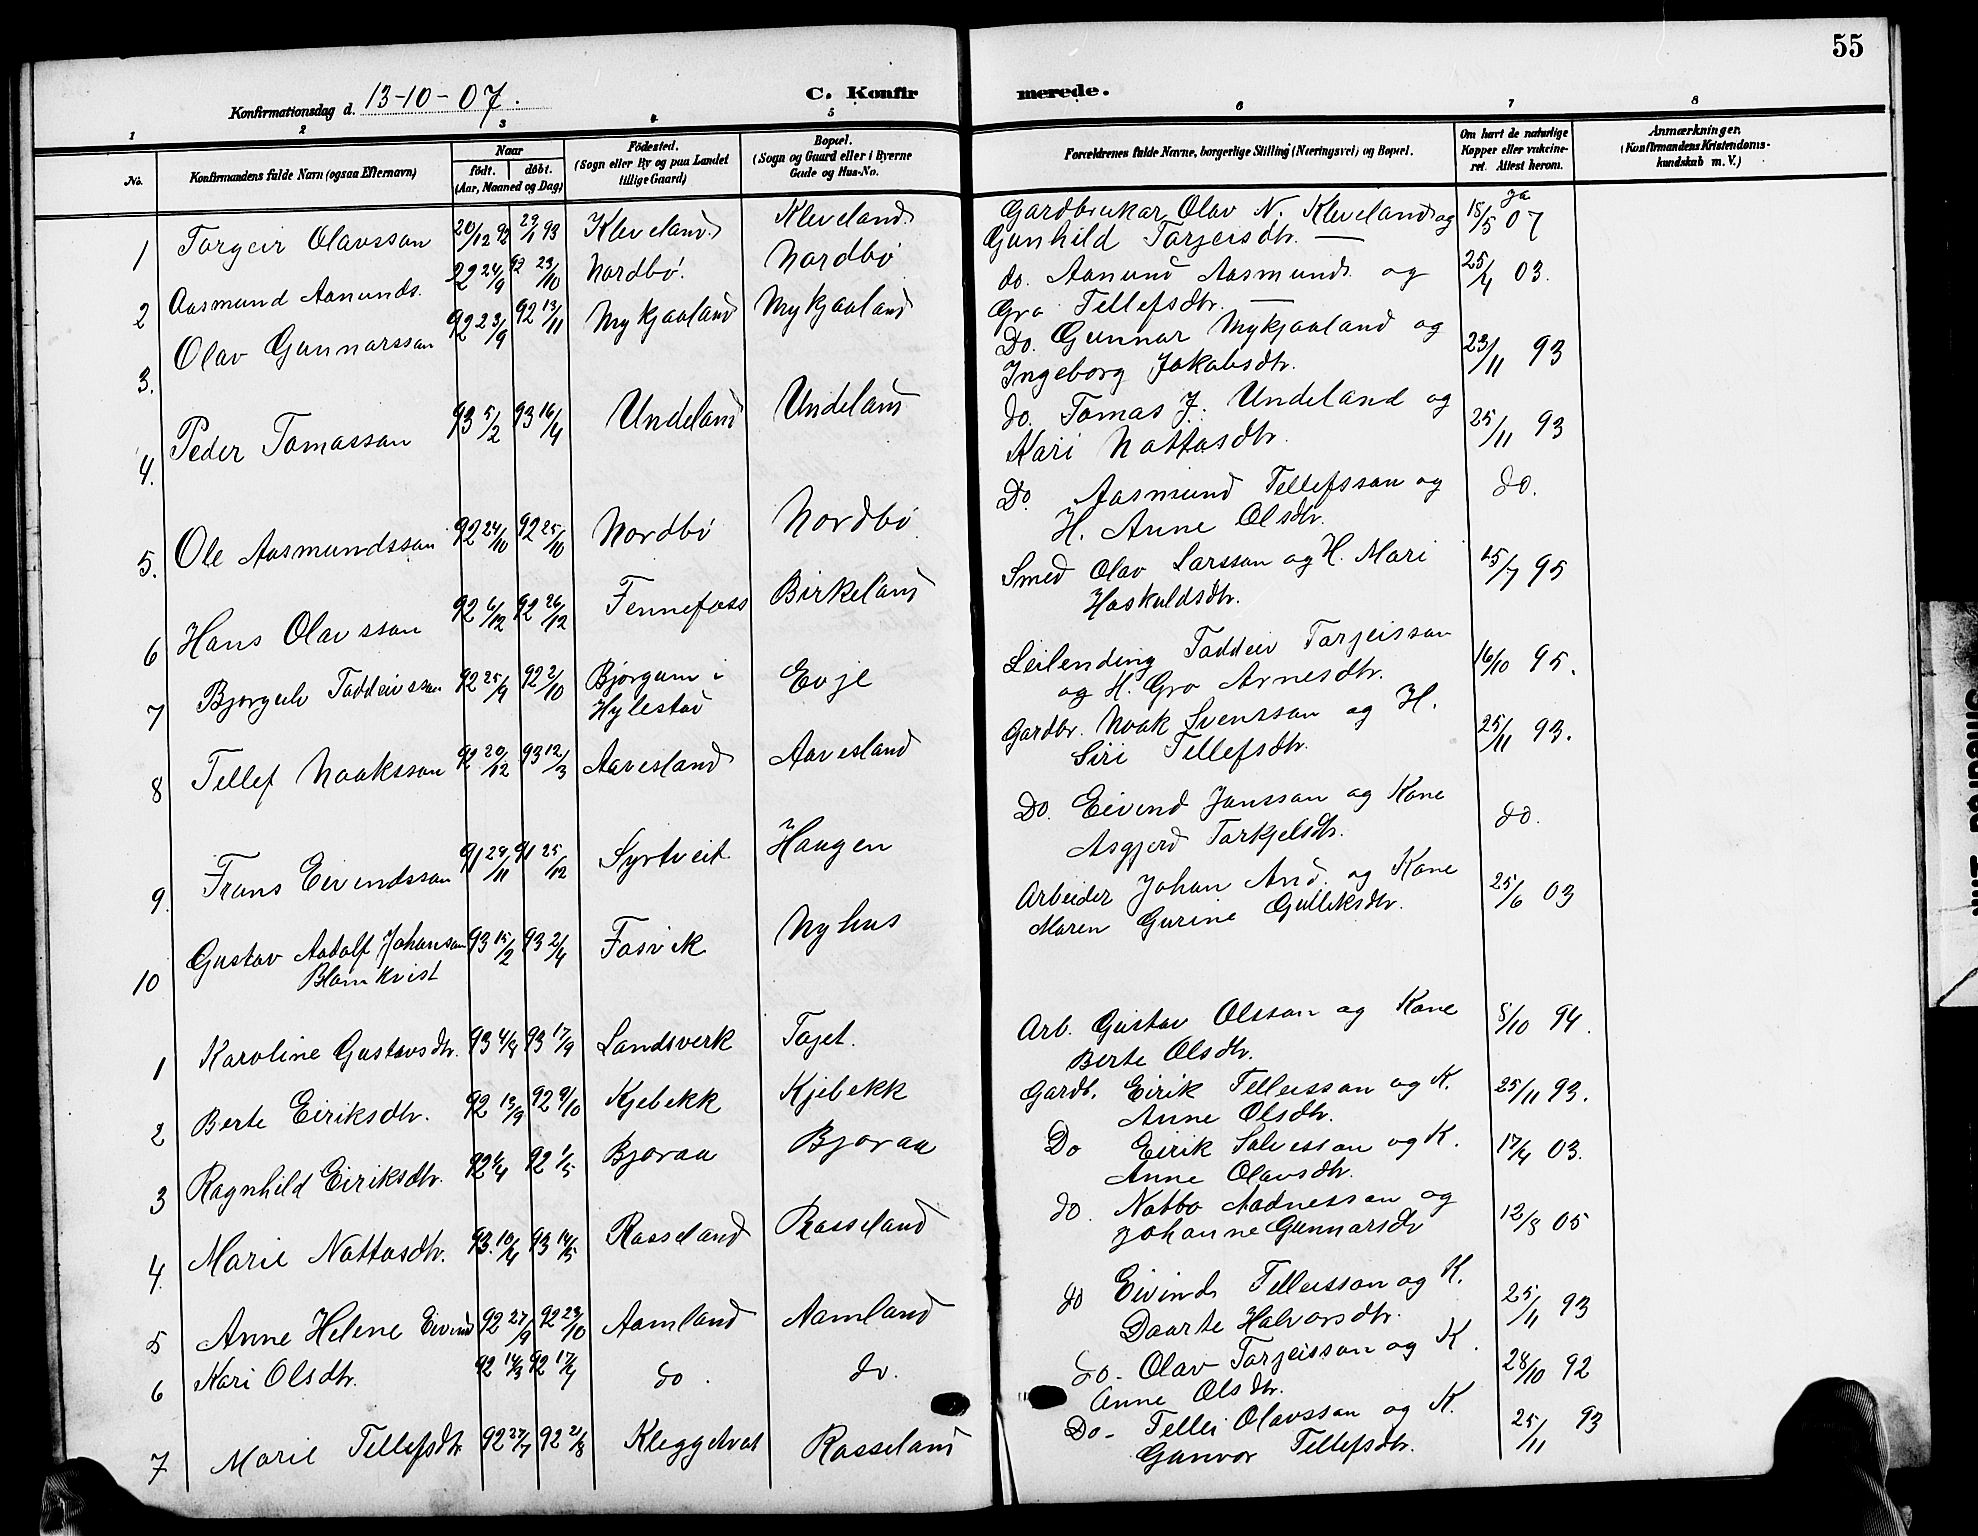 55
Konfirmationsdag d. 13-10-07.
C. Konfirmerede.
1 2 3 4 5 6 7 8
No.
Konfirmandens fulde Navn (ogsaa Efternavn)
Naar
født. døbt.
(Aar, Maaned og Dag)
Fødested.
(Sogn eller By og paa Landet
tillige Gaard)
Bopæl.
(Sogn og Gaard eller i Byerne
Gade og Hus-No.
Forældrenes fulde Navne, borgerlige Stilling (Næringsvei) og Bopæl.
Om havt de naturlige
Kopper eller vakcine-
ret. Attest herom.
Anmærkninger.
(Konfirmandens Kristendoms-
kundskab m. V.)
1 Torgeir Olavsson 20/12 92 29/1 93 Kleveland Kleveland Gardbrukar Olav N. Kleveland og ja 15/5 07
Gunhild Tarjeisdtr. —
2 Aasmund Aanunds. 92 24/9 92 23/10 Nordbø. Nordbø do. Aanund Aasmunds. og 25/4 03.
Gro Tellefsdtr. —
3. Olav Gunnarsson 92 23/9 92 13/11 Mykjaaland Mykjaaland Do. Gunnar Mykjaaland og 23/11 93
Ingeborg Jakobsdtr.
4. Peder Tomasson 93 5/2 93 16/4 Undeland Undeland do. Tomas J. Undeland og 25/11 93
Kari Nottosdtr.
5. Ole Aasmundsson 92 24/10 92 25/10 Nordbø Nordbø. Do. Aasmund Tellefsson og do.
H. Anne Olsdtr.
6 Hans Olavsson 92 6/12 92 26/12 Fennefoss Birkeland Smed Olav Larsson og H. Mari 15/7 95
Hoskuldsdtr.
7 Bjørgulv Taddeivsson 92 25/9 92 2/10 Bjørgum i Evje Leilending Taddeiv Tarjeisson 16/10 95.
Hylestad og H. Gro Arnesdtr.
8 Tellef Noaksson 92 20/12 93 12/3 Aavesland Aavesland Gardbr. Noak Svensson og H. 25/11 93.
Siri Tellefsdtr.
9. Frans Eivindsson 91 29/11 91 25/12 Syrtveit Haugen Do. Eivind Jonsson og Kone do.
Asgjerd Torkjelsdtr.
10 Gustav Aadolf Johanson 93 15/2 93 2/4 Fosvik Nyhus Arbeider Johan And. og Kone 25/6 03
Blomkvist Maren Gurine Gulleksdtr.
1 Karoline Gustavsdtr. 93 4/9 93 17/9 Landsverk Tajet. Arb. Gustav Olsson og Kone 8/10 94.
Berte Olsdtr.
2 Berte Eiriksdtr. 92 13/9 92 9/10 Kjebekk Kjebekk Gardb. Eirik Telleisson og K. 25/11 93.
Anne Olsdtr.
3 Ragnhild Eiriksdtr. 92 92 1/5 Bjoraa Bjoraa Do Eirik Salvesson og K. 17/4 03.
Anne Olavsdtr.
4. Marie Nottosdtr. 93. 10/4 93 14/5 Rosseland Rosseland do. Notto Aadnesson og 12/8 05
Johanne Gunnarsdtr
5 Anne Helene Eivind 92 27/9 92 23/10 Aamland Aamland do Eivind Telleisson og K. 25/11 93
Daarte Halvorsdtr.
6 Kari Olsdtr. 92 14/3 92 17/4 do. do. do- Olav Tarjeisson og K. 28/10 92
Anne Olsdtr.
7 Marie Tellefsdtr 92 27/7 92 21/8 Kleggetvet Rosseland Do- Tellei Olavsson og K. 25/11 93
Gunvor Tellefsdtr.